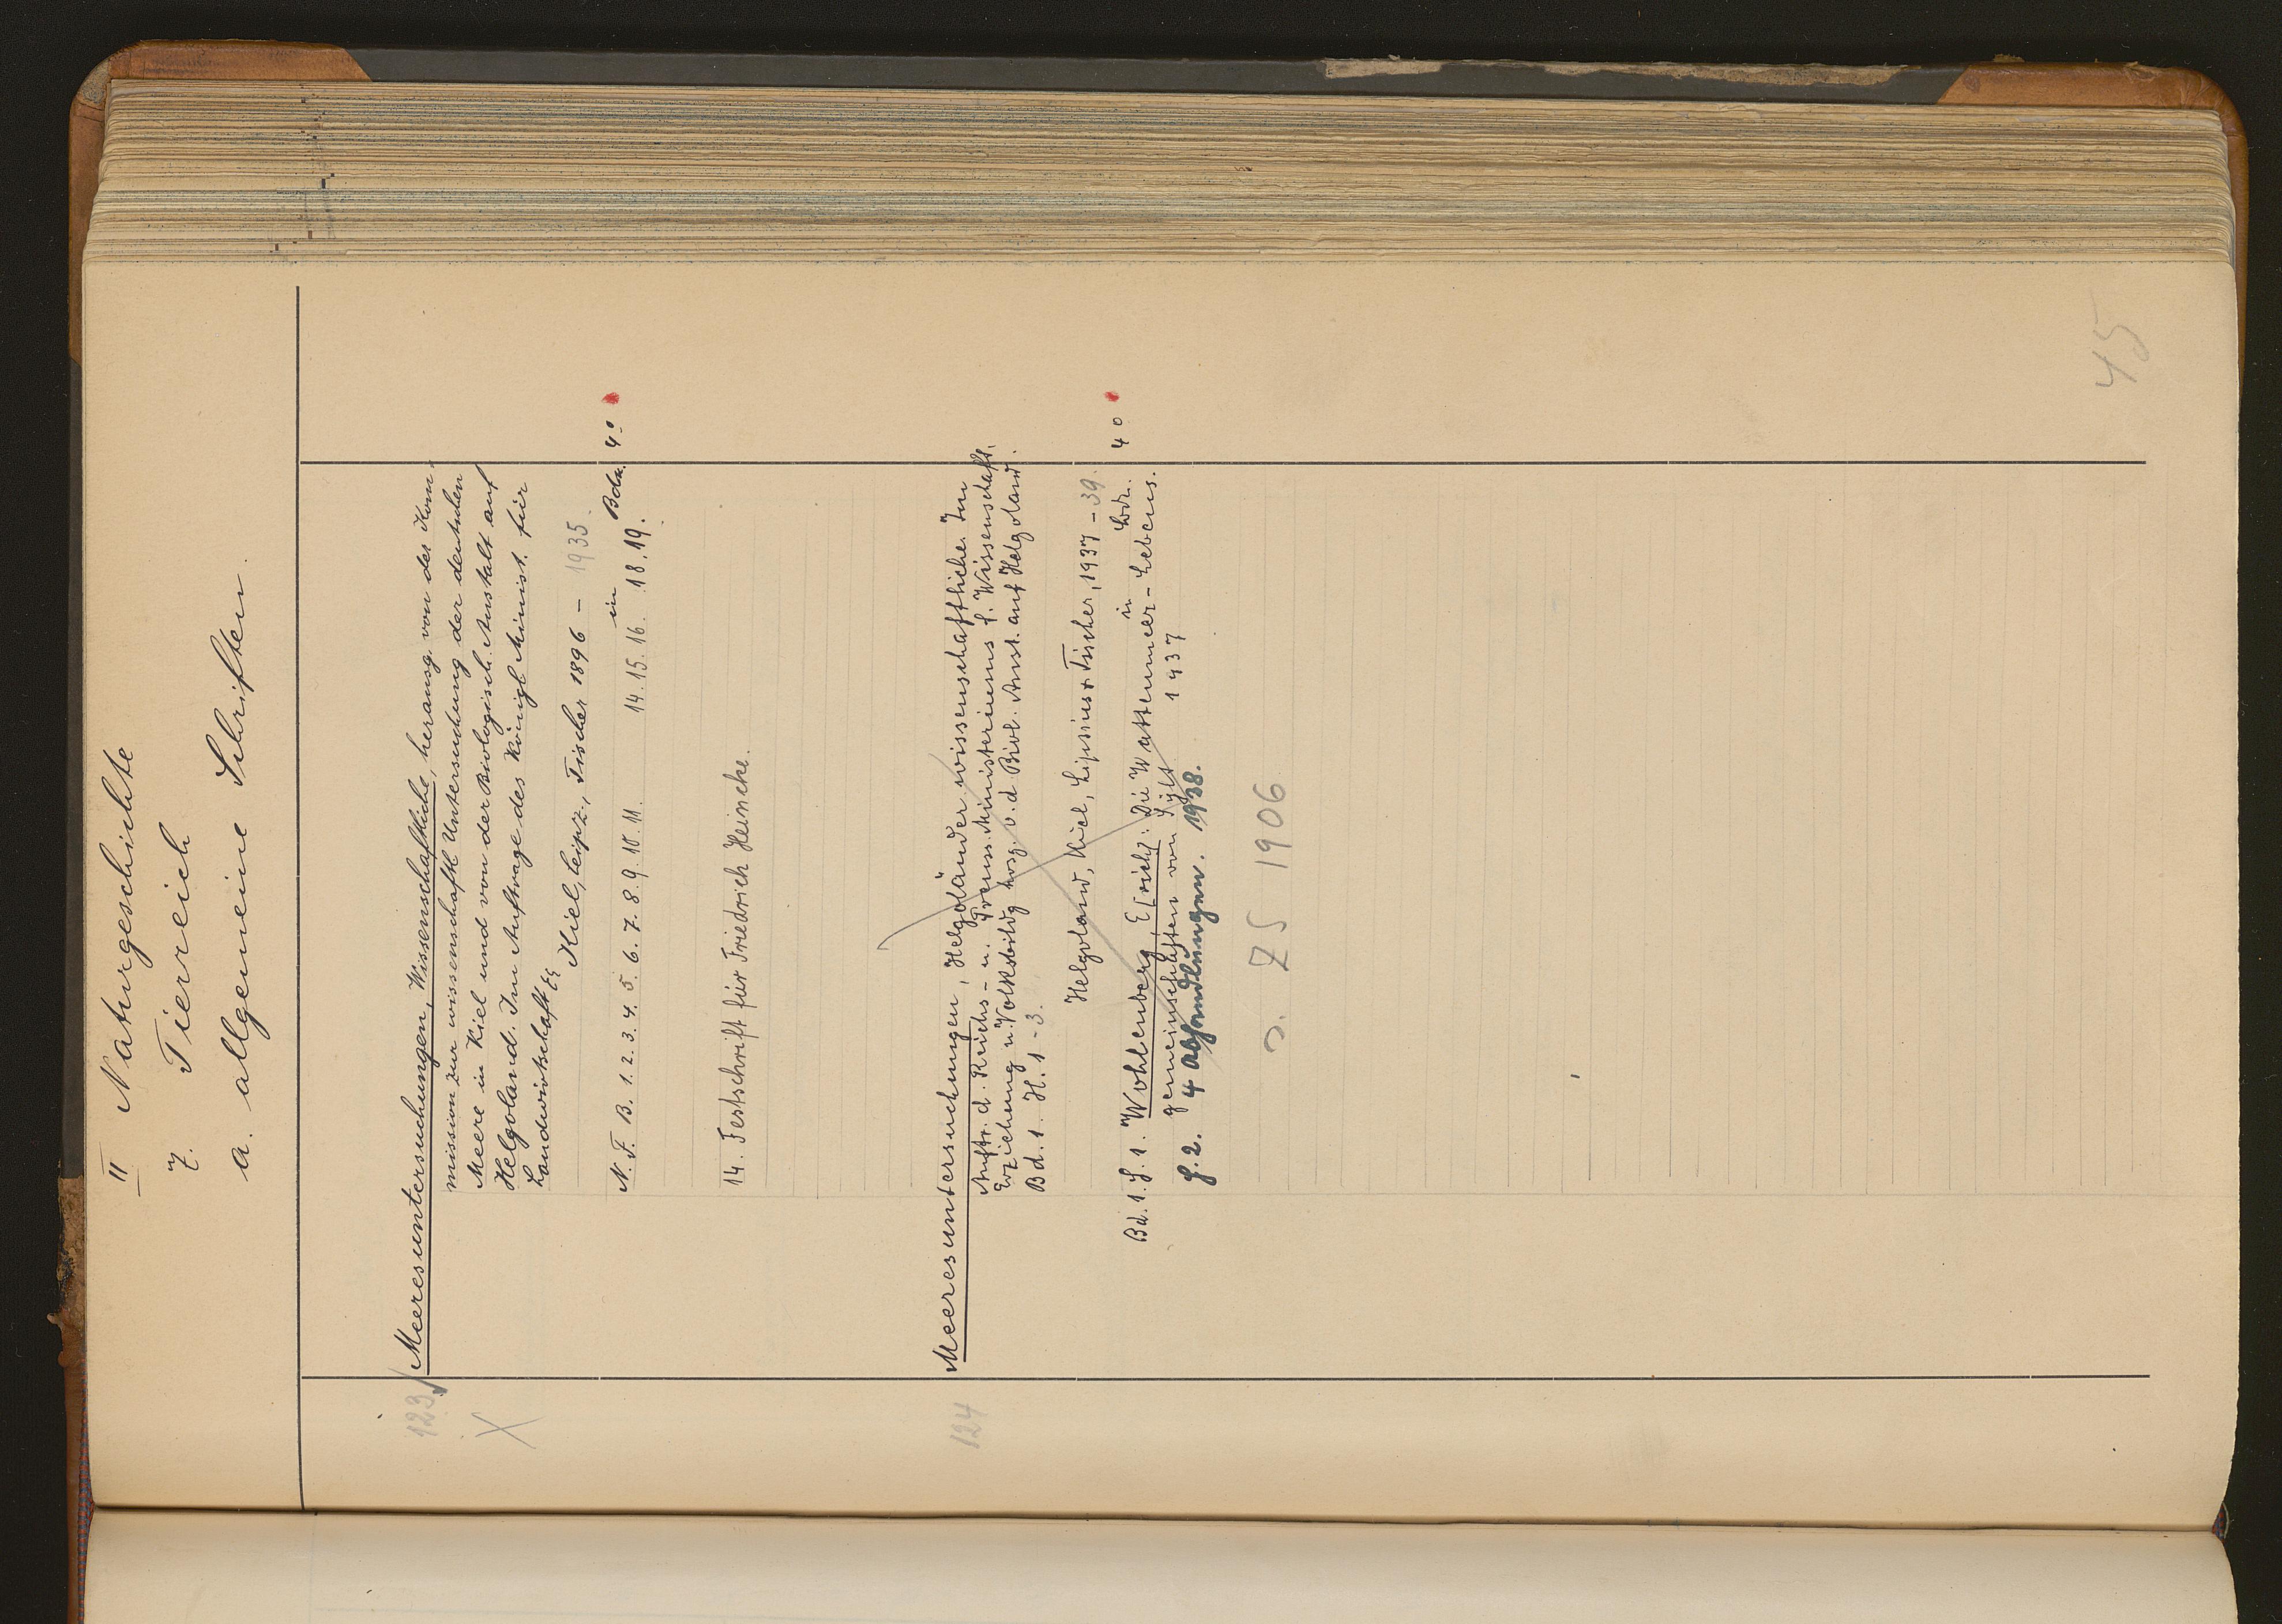 II Naturgeschichte
7. Tierreich
a. allgemeine Schriften.
45
123 Meeresuntersuchungen, Wissenschaftliche, herausg. von der Kom-
mission zur wissenschaftl. Untersuchung der deutschen
Meere in Kiel und von der Biologisch. Anstalt auf
Helgoland. Im Auftrage des Königl. Minist. für
Landwirtschaft etc
Kiel, Leipz., Fischer 1896 - 1935.
N. F. B. 1. 2. 3. 4. 5. 6. 7. 8. 9. 10. 11. 14. 15. 16. 18. 19. in Bdn. 4°
14. Festschrift für Friedrich Heincke.
124 Meeresuntersuchungen, Helgoländer wissenschaftliche. Im
Auftr. d. Reichs- u. Preuss. Ministeriums f. Wissenschaft,
Erziehung u. Volksbildg hrsg. v. d. Biol. Anst. auf Helgoland.
Bd. 1. H. 1 - 3.
Helgoland, Kiel, Lipsius & Tischer, 1937 - 39.
in Bdn. 4°
Bd. 1. H. 1. Wohlenberg, E[rich]: Die Wattenmeer-Lebens-
gemeinschaften von Sylt 1937
H. 2. 4 Abhandlungen. 1938.
s. ZS 1906